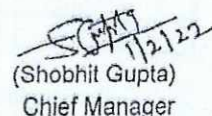 1/2/22
(Shobhit Gupta)
Chief Manager